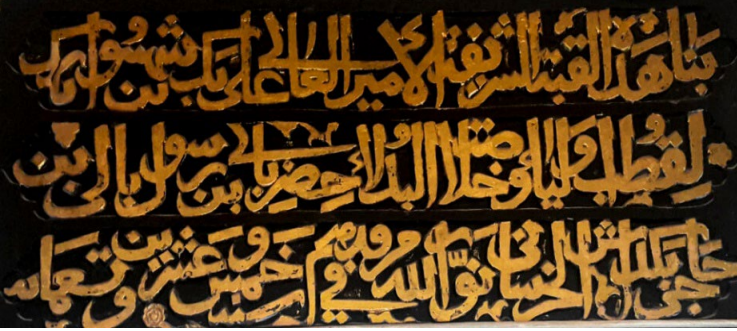 بنا هذه القبة الشريفة الامير العالي علي بك بن شهسوار بك
لقطب الاولياء وخلاصة البدلاء حضر بالي بن رسول بالي بن
حاجي بكتاش الخرساني نور الله مرقدهم في سنة خمس وعشرين وتسعماية